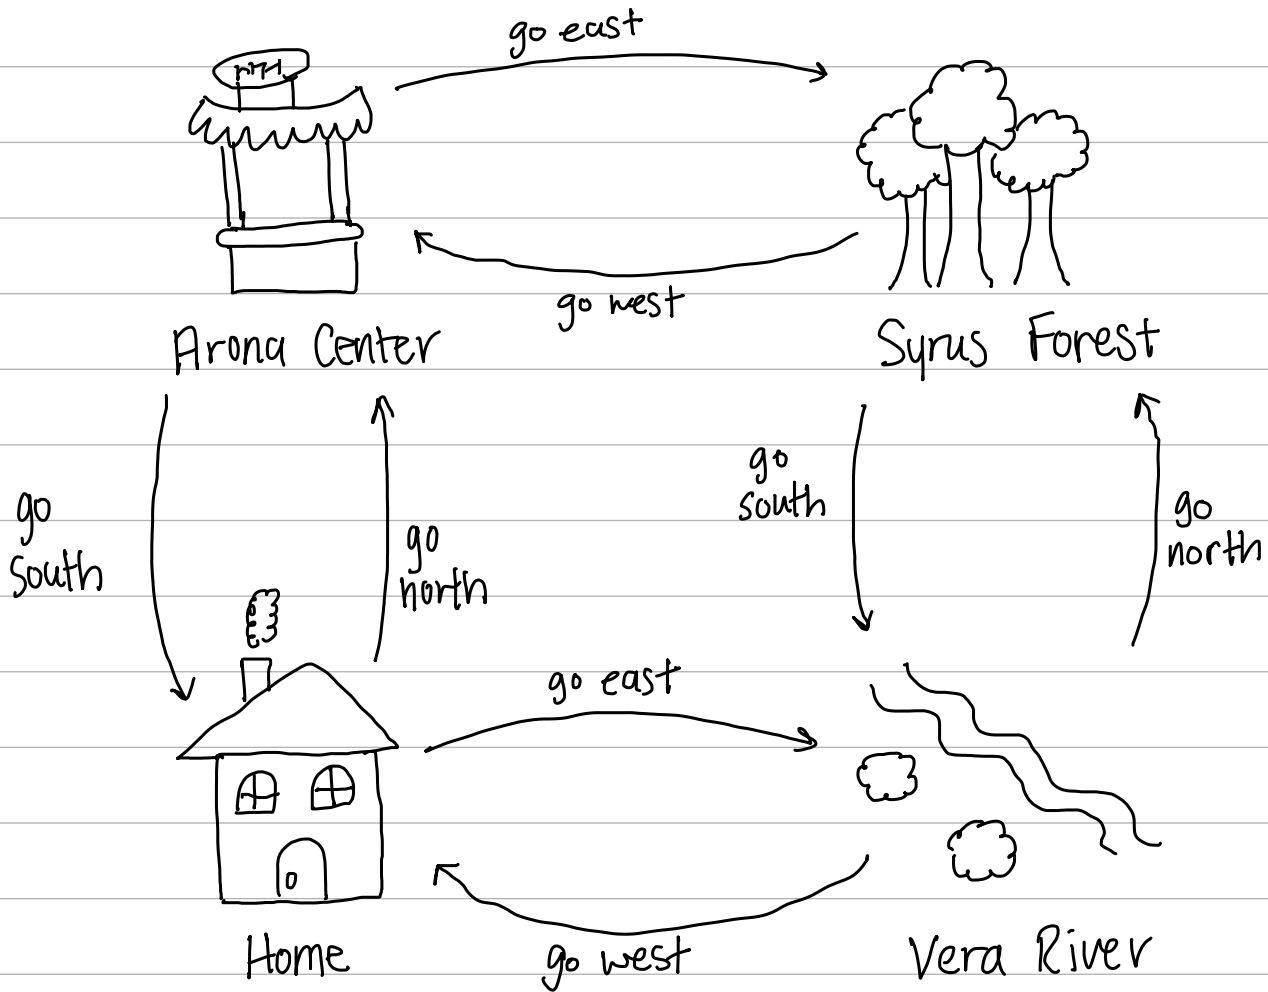 go east
go west
Arona Center
Syrus Forest
go
south
go
north
go
south
go
north
go east
go west
Home
Vera River